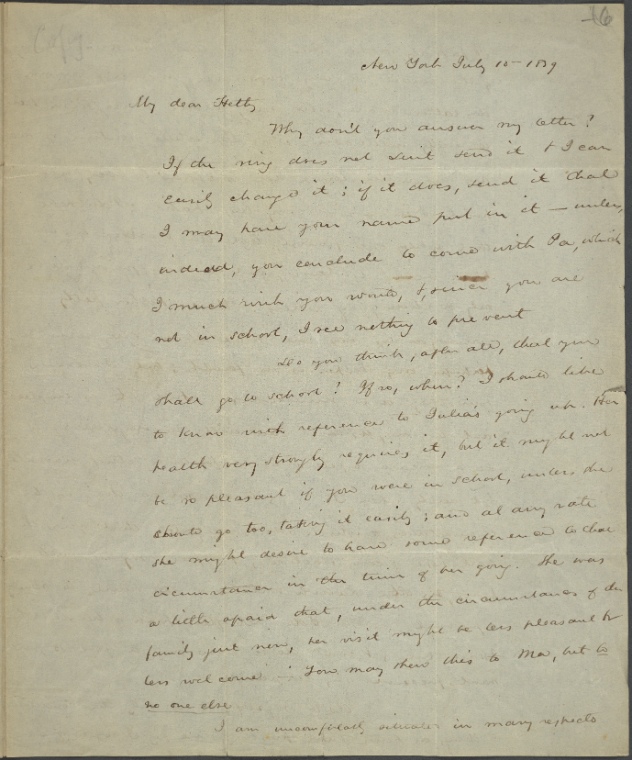 16
Copy.
New York July 15 - 1839
My dear Hetty
Why don't you answer my letter?
If the ring does not suit send it & I can
easily change it; if it does, send it that
I may have your name put in it — unless,
indeed, you conclude to come with Pa, which
I much wish you would, &, since you are
not in school, I see nothing to prevent
Do you think, after all, that you
shall go to school? If so, when? I should like
to know with reference to Julia's going up. Her
health very strongly requires it, but it might not
be so pleasant if you were in school, unless she
should go too, taking it easily; and at any rate
she might desire to have some reference to that
circumstance in the time of her going. She was
a little afraid that, under the circumstances of the
family just now, her visit might be less pleasant &
less welcome. You may show this to Ma, but to
no one else
I am uncomfortably situated in many respects